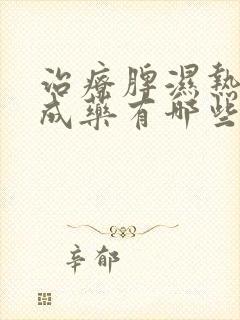 治療脾濕熱
成藥有哪些
辛郁